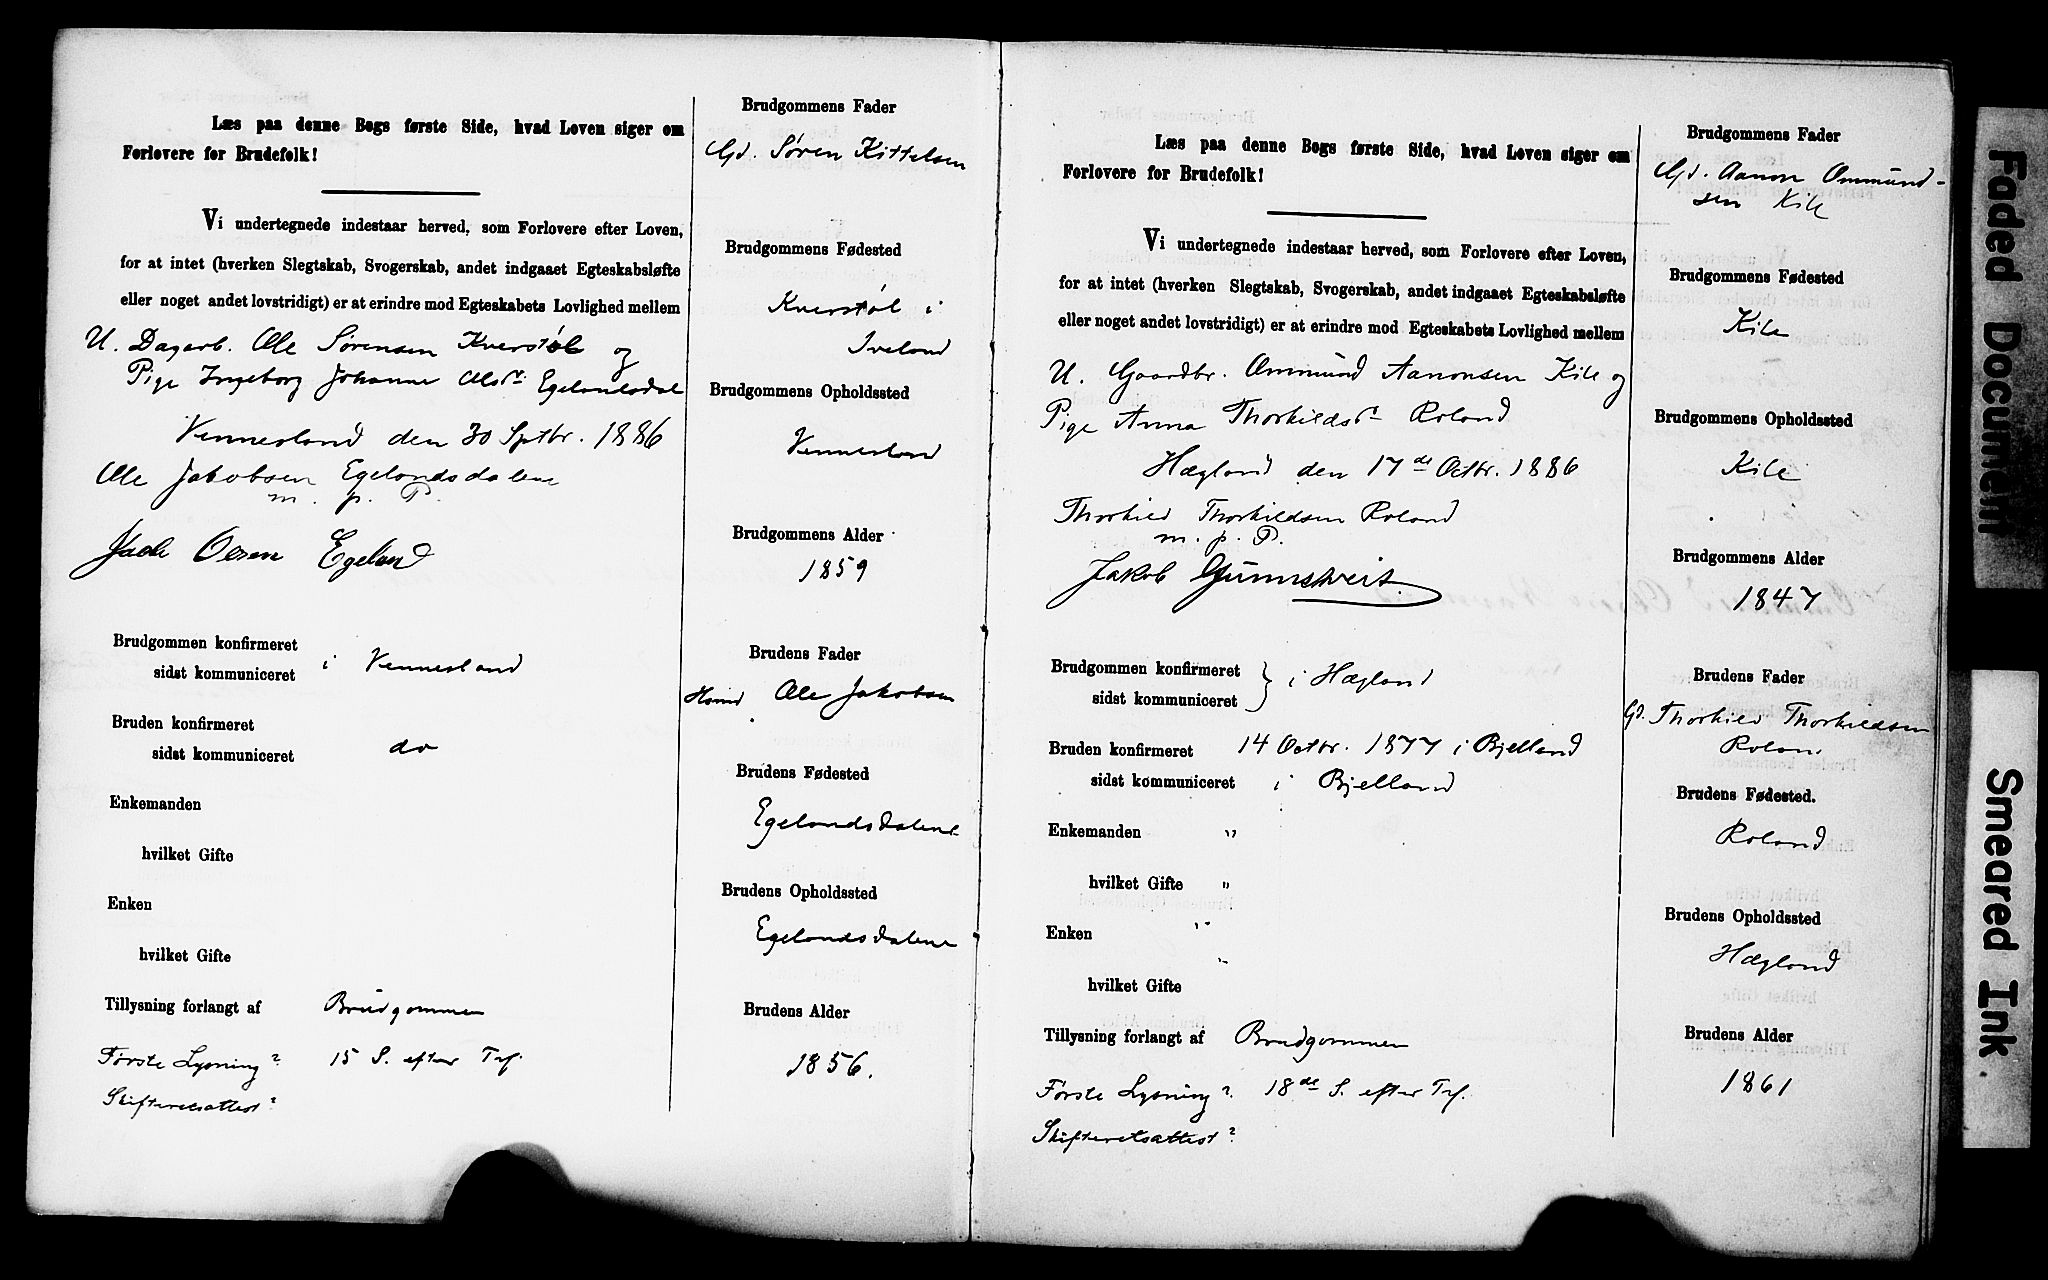 Læs paa denne Bogs første Side, hvad Loven siger om
Forlovere for Brudefolk!
Vi undertegnede indestaar herved, som Forlovere efter Loven,
for at intet (hverken Slegtskab, Svogerskab, andet indgaaet Egteskabsløfte
eller noget andet lovstridigt) er at erindre mod Egteskabets Lovlighed mellem
U. Dagarb. Ole Sørensen Kverstøl og
Pige Ingeborg Johanne Olsdr. Egelandsdal
Vennesland den 30 Sptbr. 1886
Ole Jakobsen Egelandsdalene
m. p. P.
Olsen Egeland
Brudgommen konfirmeret
sidst kommuniceret i Vennesland
Bruden konfirmeret
sidst kommuniceret do
Enkemanden
hvilket Gifte
Enken
hvilket Gifte
Tillysning forlangt af Brudgommen
Første Lysning? 15 S. efter Trf.
Skifteretsattest?
Brudgommens Fader
Gd. Søren Kittelsen
Brudgommens Fødested
Kverstøl i
Iveland
Brudgommens Opholdssted
Vennesland
Brudgommens Alder
1859
Brudens Fader
Hsmd Ole Jakobsen
Brudens Fødested
Egelandsdalene
Brudens Opholdssted
Egelandsdalene
Brudens Alder
1856.
Læs paa denne Bogs første Side, hvad Loven siger om
Forlovere for Brudefolk!
Vi undertegnede indestaar herved, som Forlovere efter Loven,
for at intet (hverken Slegtskab, Svogerskab, andet indgaaet Egteskabsløfte
eller noget andet lovstridigt) er at erindre mod Egteskabets Lovlighed mellem
U. Gaardbr. Ommund Aanonsen Kile og
Pige Anna Thorkildsdr Roland
Hægland den 17de Octbr. 1886
Thorkild Thorkildsen Roland
m. p. P.
Jakob Gunnsveit.
Brudgommen konfirmeret
sidst kommuniceret } i Hægland
Bruden konfirmeret 14 Octbr. 1877 i Bjelland
sidst kommuniceret i Bjelland
Enkemanden "
hvilket Gifte "
Enken "
hvilket Gifte "
Tillysning forlangt af Brudgommen
Første Lysning? 18de S. efter Trf.
Skifteretsattest?
Brudgommens Fader
Gd. Aanon Ommund-
sen Kile
Brudgommens Fødested
Kile
Brudgommens Opholdssted
Kile
Brudgommens Alder
1847
Brudens Fader
Gd. Thorkild Thorkildsen
Roland
Brudens Fødested.
Roland
Brudens Opholdssted
Hægland
Brudens Alder
1861
Faded Document
Smeared Ink